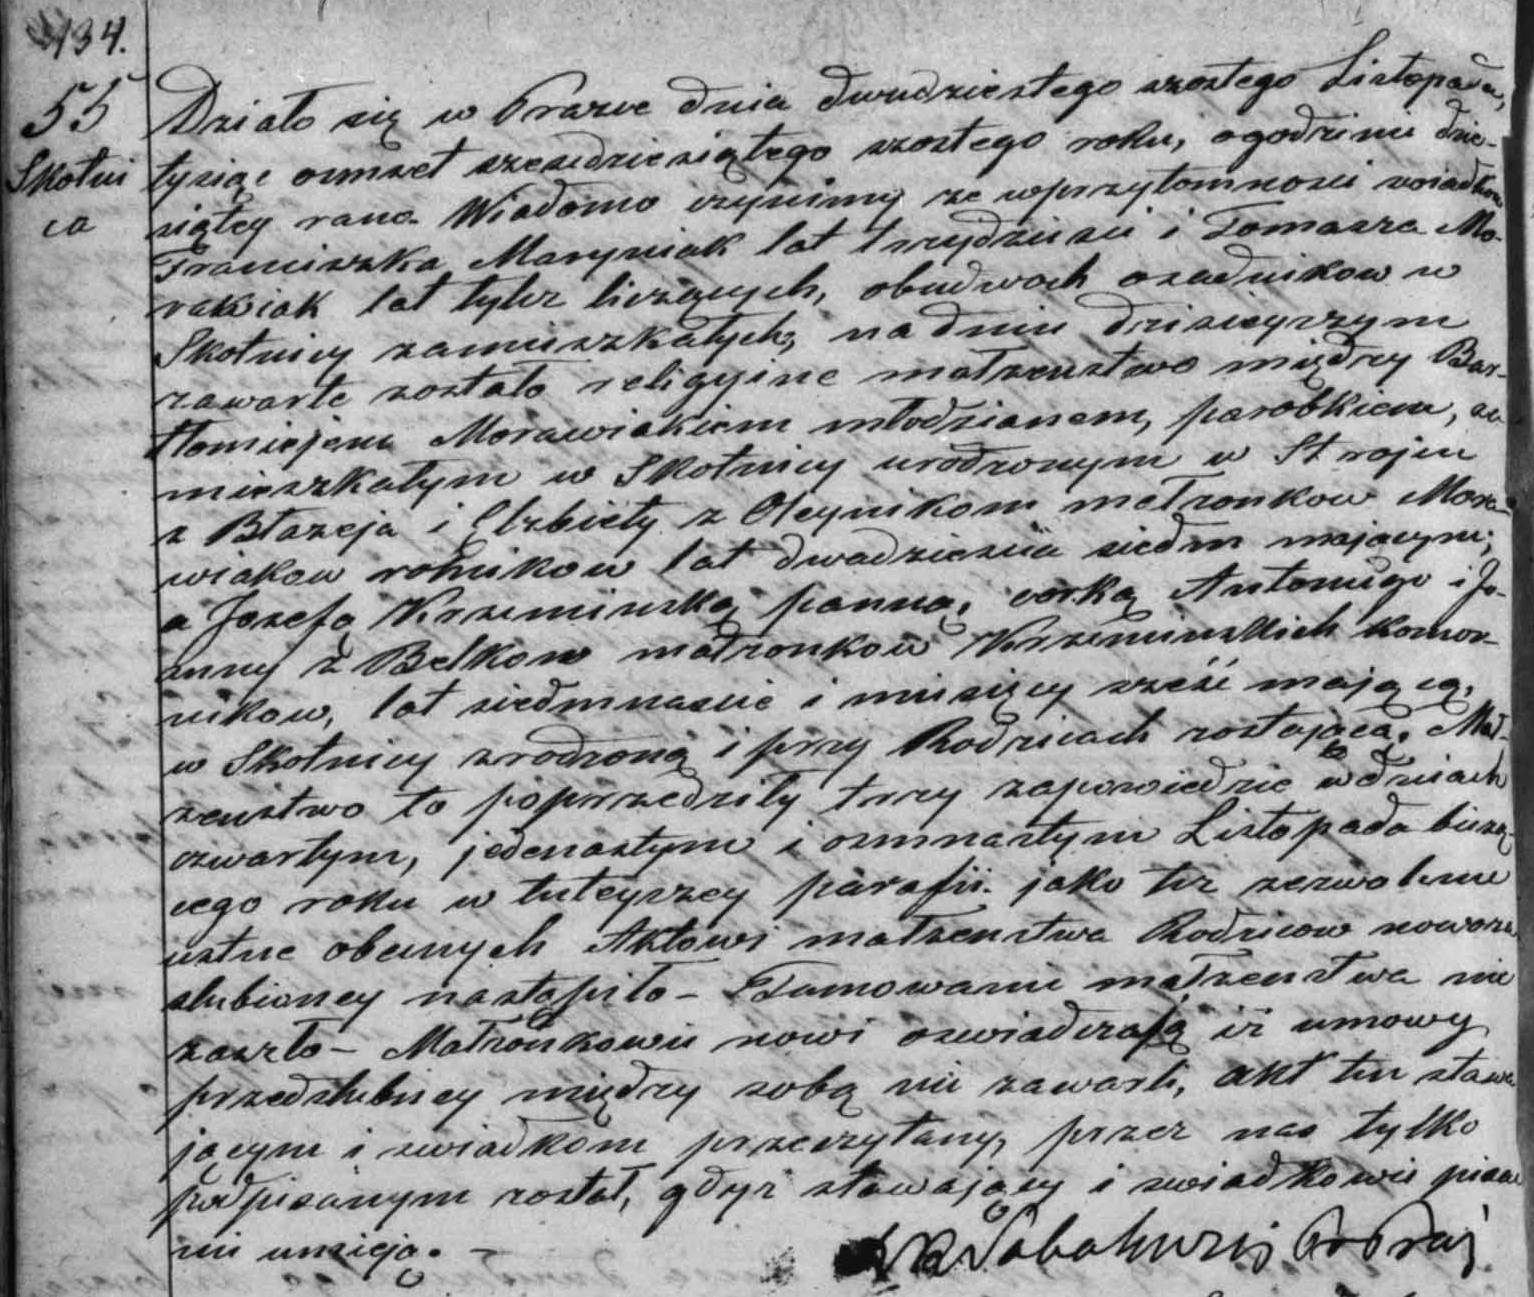 134.
55
Skotni
ca
Działo się w Prazve dnia dwudziestego szostego Listopada,
tysiąc osmset szescdziesiątego szostego roku, ogodzinie dzie-
siątey rano. Wiadomo czynimy ze wprzytomnosci swiadkow
Franciszka Maryniak lat trzydziesci i Tomasza Mo-
rawiak lat tylez liczących, obudwoch osadnikow w
Skotnicy zamieszkałych, na dniu dzisieyszym
zawarte zostało religijne małzenstwo między Bar-
tłomiejem Morawiakiem młodzianem, parobkiem, za-
mieszkałym w Skotnicy urodzonym w Strojcu
z Błazeja i Elzbiety z Oleynikow małzonkow Mora-
wiakow rolnikow lat dwadziescia siedm mającym;
a Jozefą Krzeminską panną, corką Antoniego i Jo-
anny z Belkow małzonkow Krzeminskich komor-
nikow, lat siedmnascie i miesięcy sześć mającą,
w Skotnicy zrodzoną i przy Rodzicach zostającą. Mał-
zenstwo to poprzedziły trzy zapowiedzie w dniach
czwartym, jedenastym i osmnastym Listopada bieżą-
cego roku w tuteyszey parafii. jako tez zezwolenie
ustne obecnych Aktowi małzenstwa Rodzicow nowoza-
slubioney nastąpiło - Tamowanie małzenstwa nie
zaszło - Małzonkowie nowi oswiadczają iż umowy
przedslubney między sobą nie zawarli, akt ten stawa-
jącym i swiadkom przeczytany, przez nas tylko
podpisanym został, gdyż stawający i swiadkowie pisac
nie umieją. -